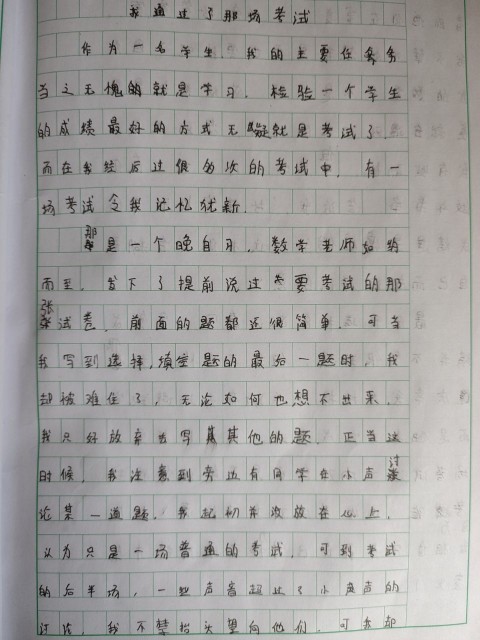 我通过了那场考试
作为一名学生,我的主要任务务
当之无愧的就是学习.检验一个学生
的成绩最好的方式无疑就是考试了.
而在我经历过很多次的考试中,有一
场考试令我记忆犹新.
那是一个晚自习,数学老师如约
而至.发下了提前说过要考试的那
张试卷.前面的题都还很简单.可当
我写到选择,填空题的最后一题时,我
却被难住了,无论如何也想不出来,
我只好放弃去写其他的题.正当这
时候,我注意到旁边有同学在小声讨
论某一道题.我起初并没放在心上,
以为只是一场普通的考试.可到考试
的后半场,一些声音超过了小声的
讨论,我不禁抬头望向他们,可我却